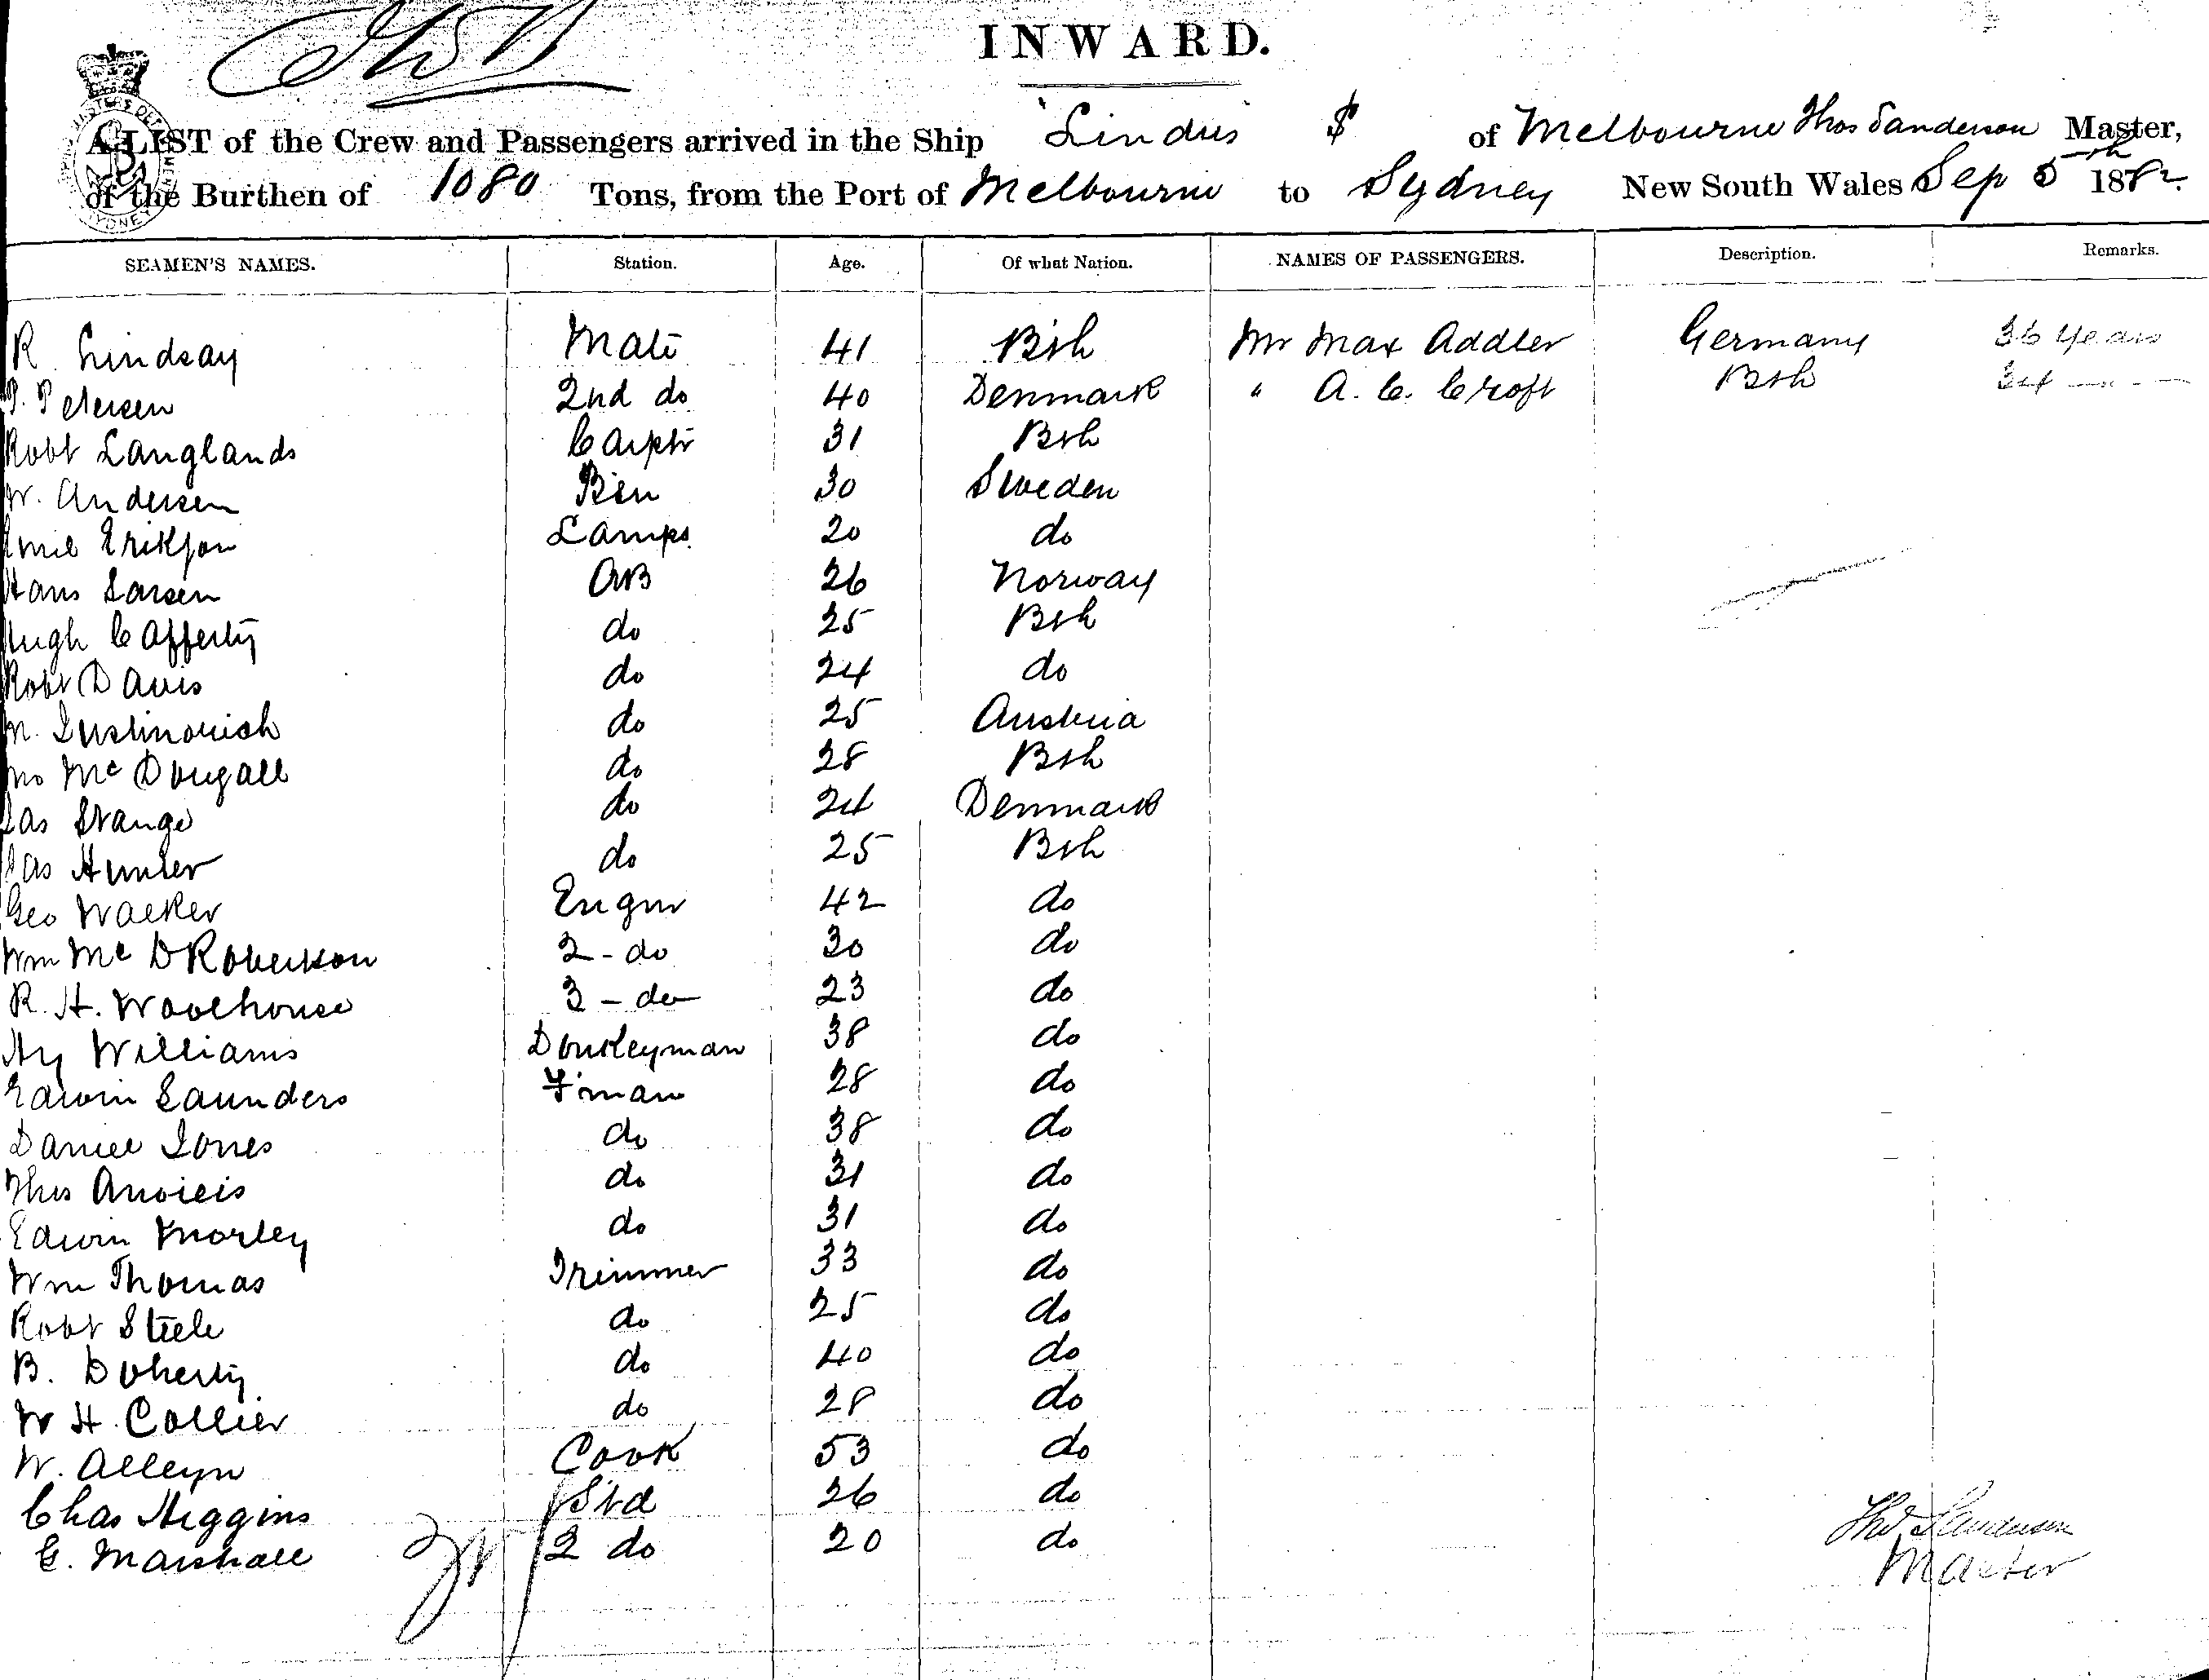 INWARD.
A LIST of the Crew and Passengers arrived in the Ship "Lindus" $ of Melbourne Thos Sanderson Master,
of the Burthen of 1080 Tons, from the Port of Melbourne to Sydney New South Wales Sep 5th 1882.
SEAMEN'S NAMES. Station. Age. Of what Nation. NAMES OF PASSENGERS. Description. Remarks.
R Lindsay Mate 41 Bsh Mr Max Addler Germany 36 Years
P. Petersen 2nd do 40 Denmark " A. C. Croft Bsh 34 — " —
Robt Langlands Carptr 31 Bsh
W. Andersen Bsn 30 Sweden
Emil Erikson Lamps 20 do
Hans Larsen AB 26 Norway
Hugh Cafferty do 25 Bsh
Robt Davis do 24 do
M. Iustinovich do 25 Austria
Jno McDougall do 28 Bsh
Jas Strange do 24 Denmark
Jas Hunter do 25 Bsh
Geo Walker Engnr 42 do
Wm Mc D Robertson 2 - do 30 do
R. H. Woolhouse 3 - do 23 do
Hy Williams Donkeyman 38 do
Edwin Saunders F'man 28 do
Daniel Jones do 38 do
Thos do 31 do
Edwin Morley do 31 do
Wm Thomas Trimmer 33 do
Robt Steele do 25 do
B. Doherty do 40 do
W H Collier do 28 do
W. Alleyn Cook 53 do
Chas Higgins Std 26 do
G. Marshall 2 do 20 do
Thos Sanderson
Master